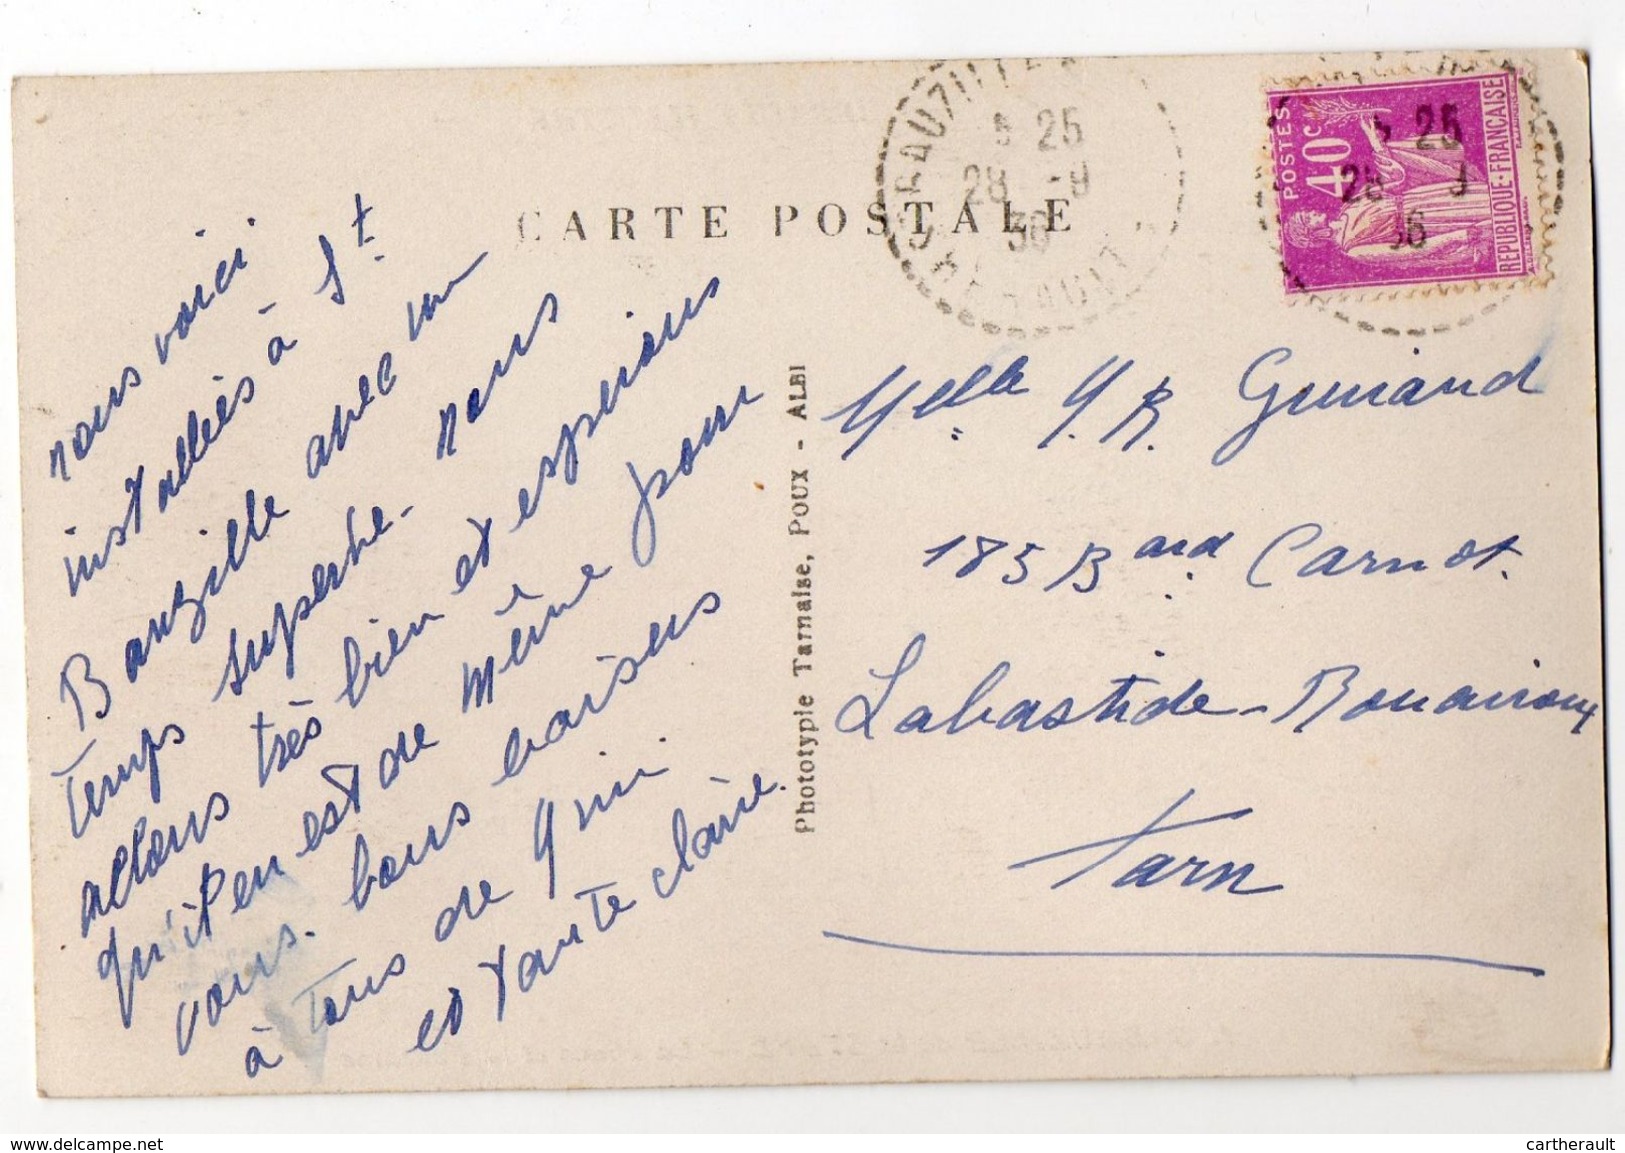 CARTE POSTALE
nous voici
installées à St
Bauzille avec un
temps superbe. nous
allons très bien et espérons
qu'il en est de même pour
vous. bons baisers
à tous de
et tante claire.
Phototypie Tarnaise, POUX - ALBI
25
28 -9
36
HERAULT
POSTES
40c
REPUBLIQUE-FRANÇAISE
25
28 9
36
Melle Y. R. Guiraud
185 Bard Carnot.
Labastide-Rouairoux
Tarn
www.delcampe.net
cartherault